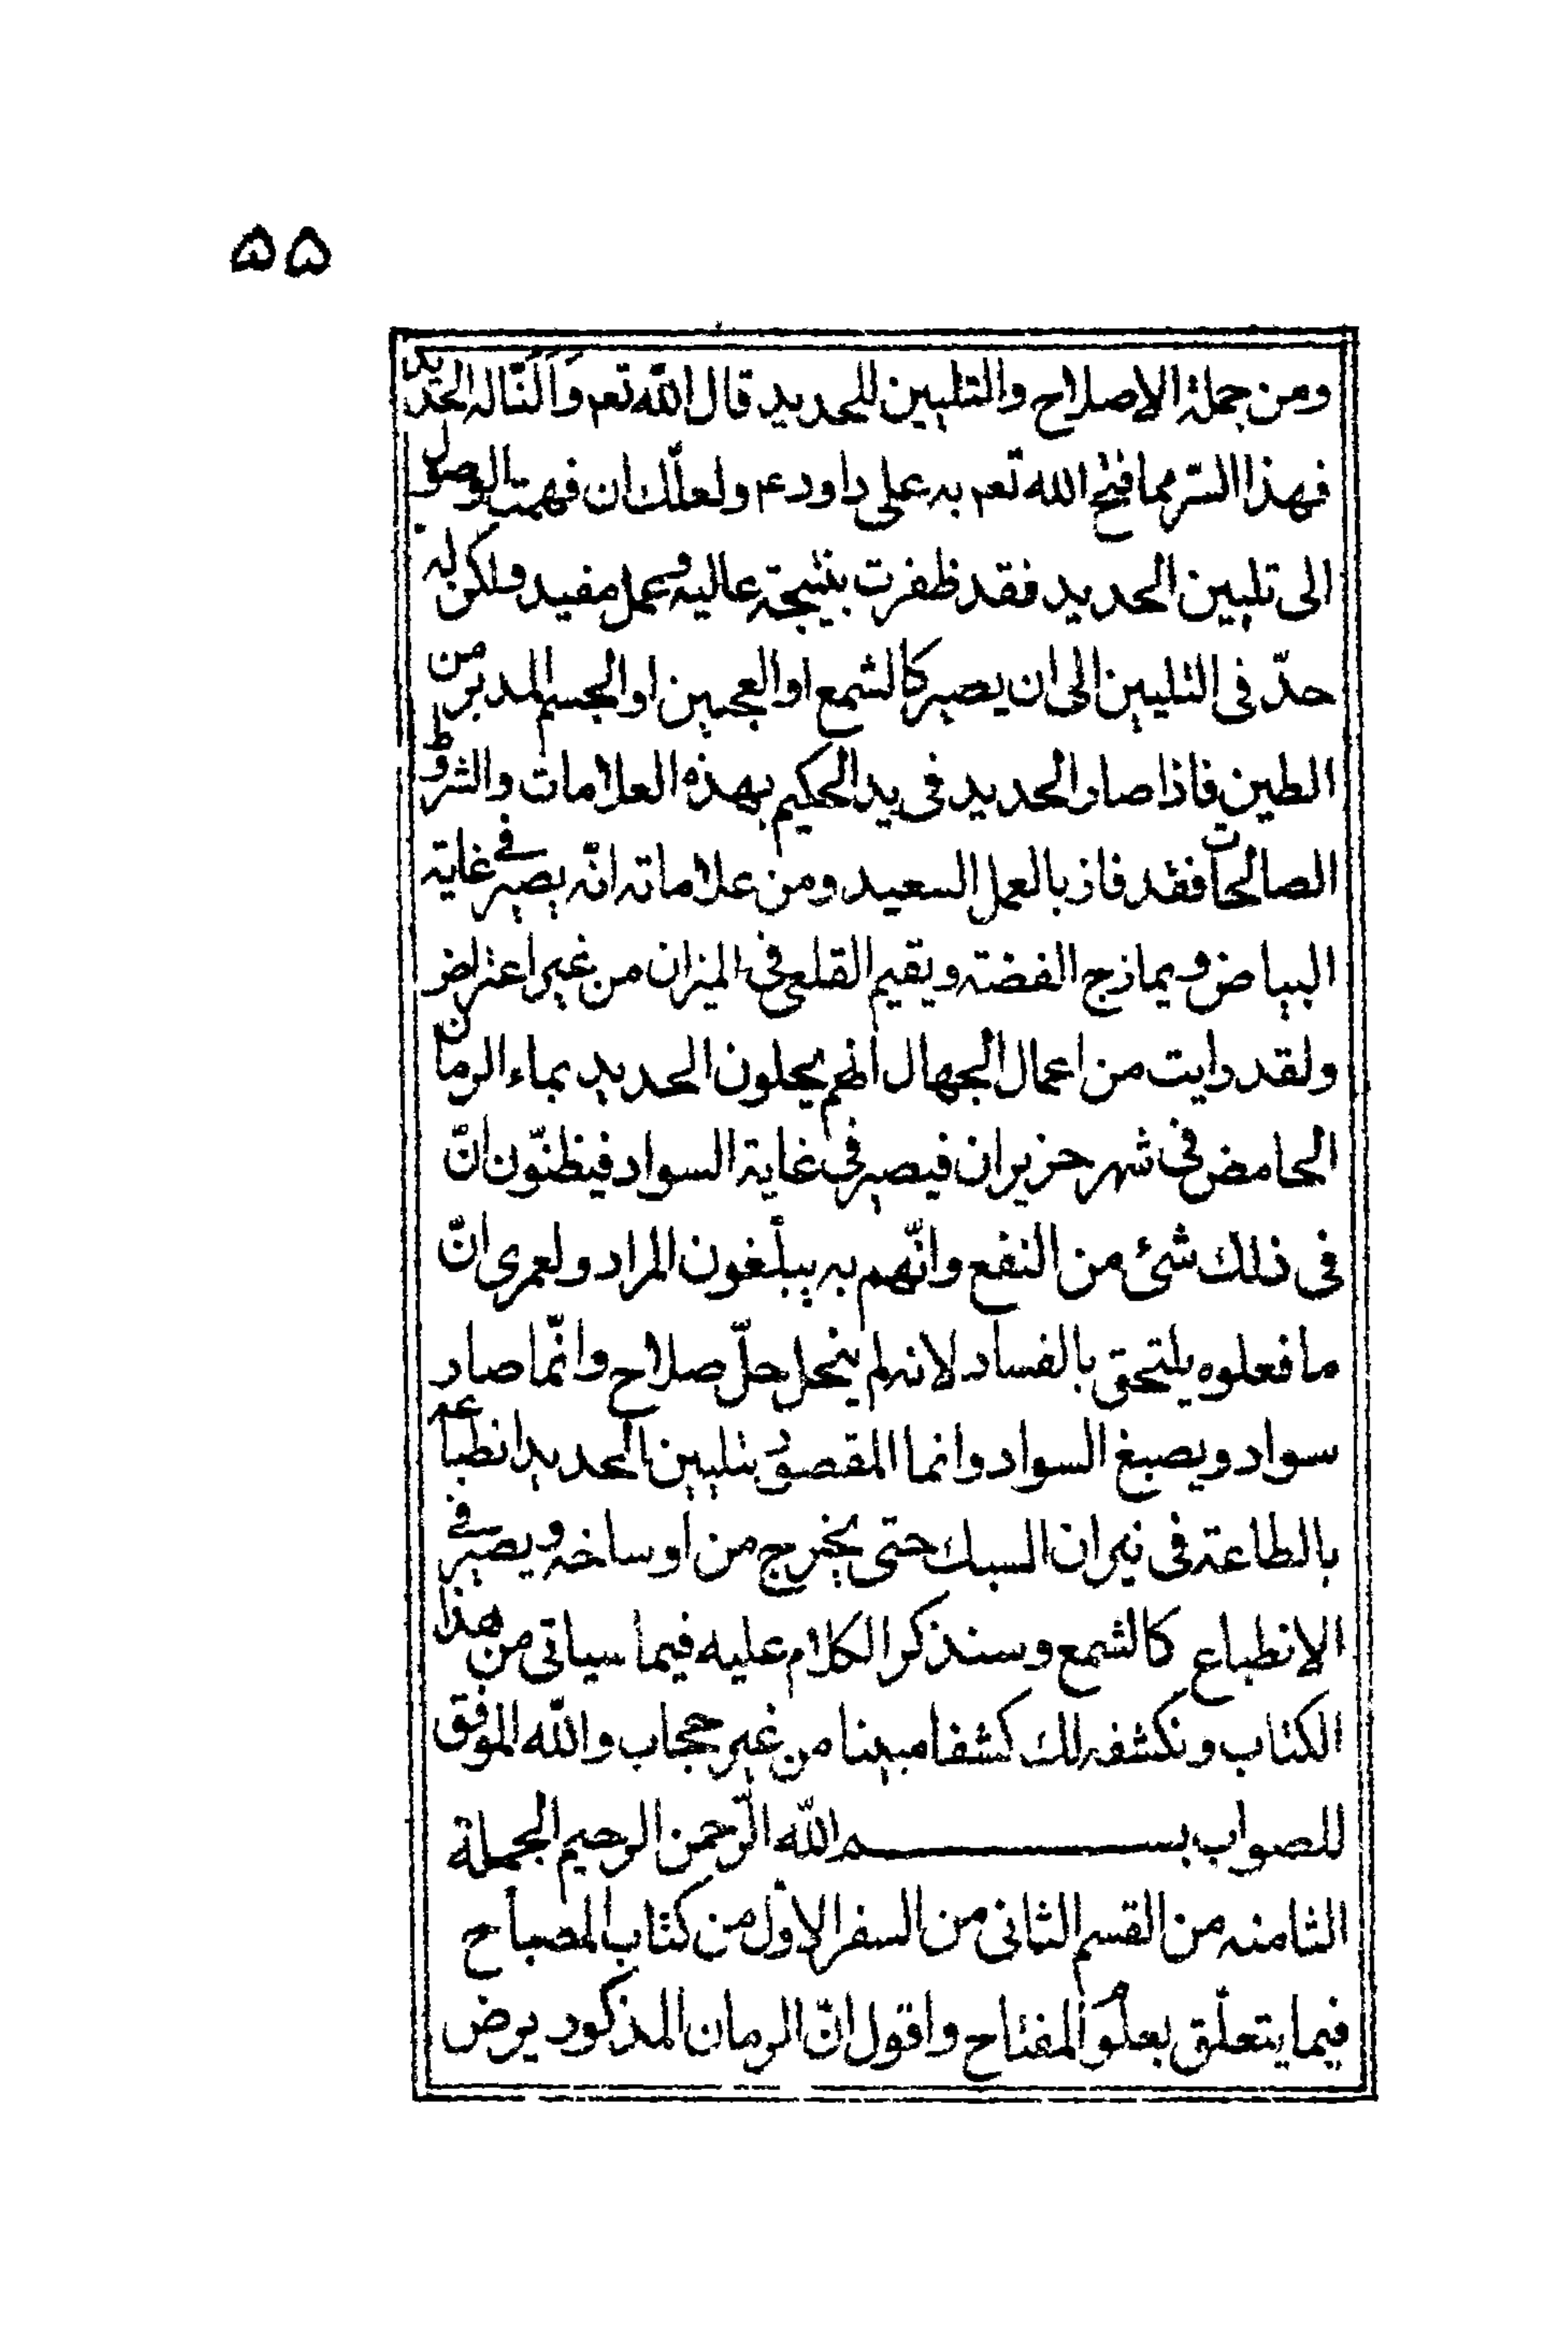 ۵۵
ومن جملة الاصلاح والتليين للحديد قال الله تعم وَاَلَنّا له الحَديد
فهذا السّر مما فتح الله تعم به على داود ع ولعلّك ان فهمت الوصول
الى تليين الحديد فقد ظفرت بنتيجة عاليه وعمل مفيد ولكن له
حدّ فى التليين الى ان يصير كالشمع او العجين او الجسم المدبر من
الطين فاذا صار الحديد فى يد الحكيم بهذه العلامات والشروط
الصالحات فقد فاز بالعمل السعيد ومن علاماته انّه يصير فى غاية
البياض ويمازج الفضة ويقيم القلعى فى الميزان من غير اعتراض
ولقد رايت من اعمال الجهال انهم يحلون الحديد بماء الرمان
الحامض فى شهر حزيران فيصير فى غاية السواد فيظنّون انّ
فى ذلك شئ من النفع وانّهم به يبلغون المراد ولعمرى انّ
ما فعلوه يلتحق بالفساد لانه لم ينحل حلّ صلاح وانّما صار
سواد ويصبغ السواد وانما المقصود بتليين الحديد انطباعه
بالطاعة فى نيران السبك حتى يخرج من اوساخه ويصير فى
الانطباع كالشمع وسنذكر الكلام عليه فيما سياتى من هذا
الكتاب ونكشفه لك كشفا مبينا من غير حجاب والله الموفق
للصواب بسم الله الرّحمن الرحيم الجملة
الثامنه من القسم الثانى من السفر الاوّل من كتاب المصباح
فيما يتعلّق بعلوم المفتاح واقول انّ الرمان المذكور يرض